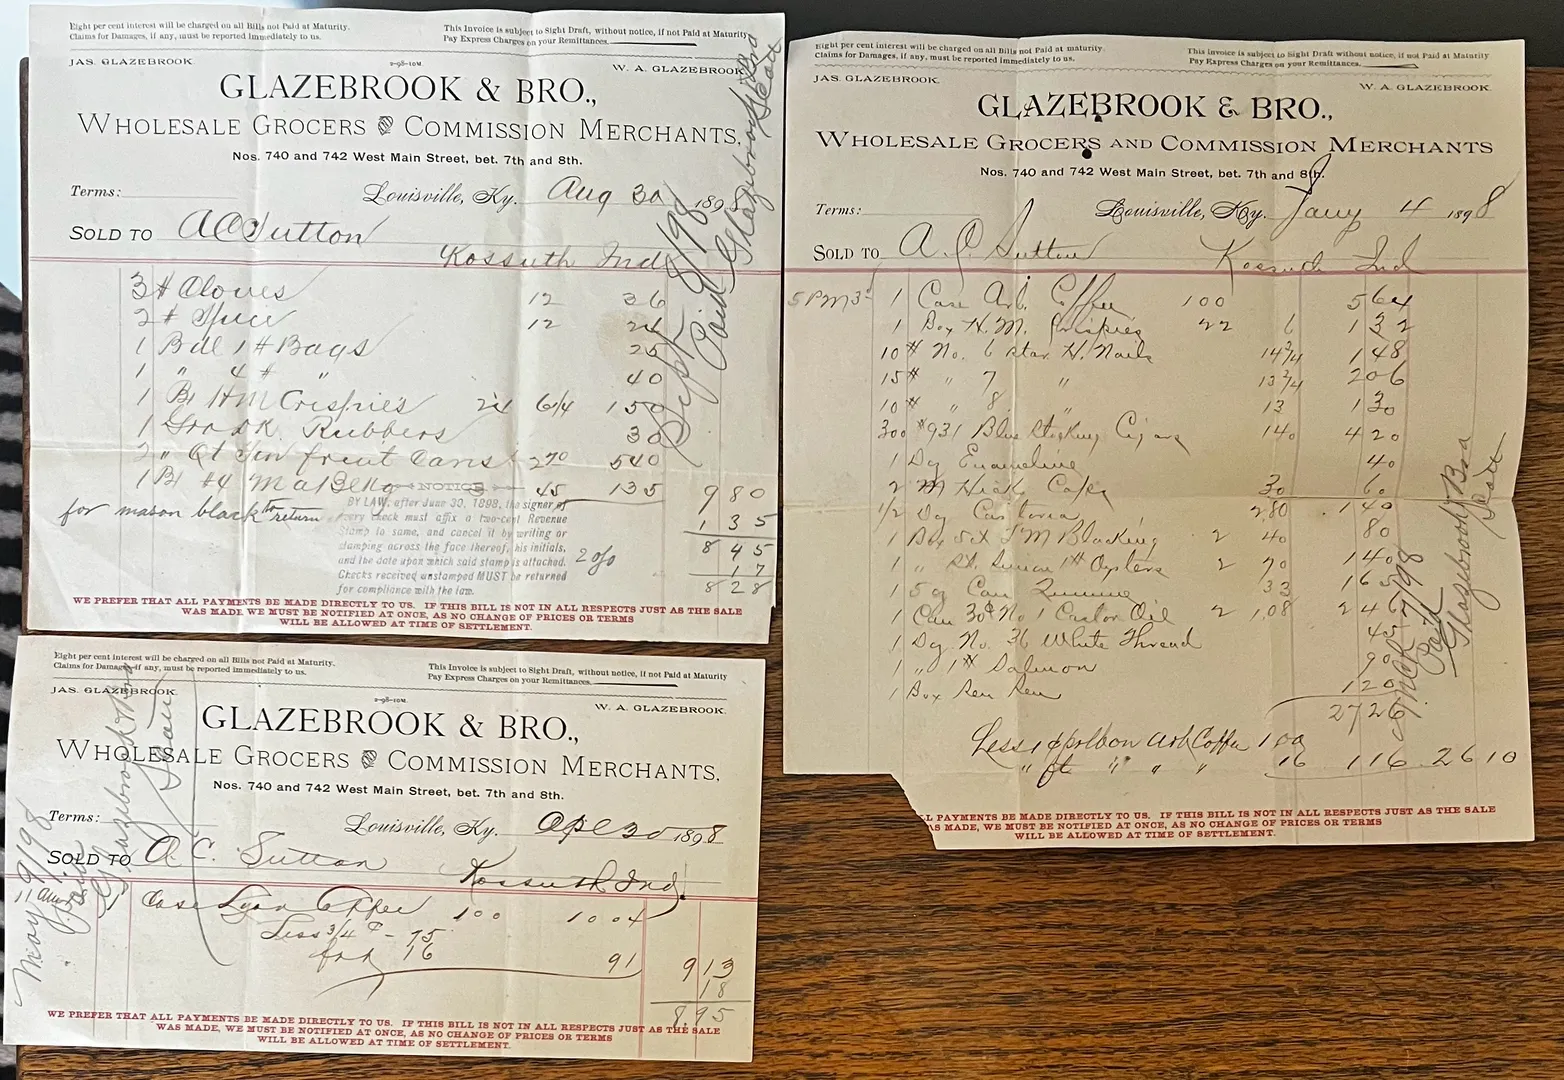 Eight per cent interest will be charged on all Bills not Paid at Maturity.
Claims for Damages, if any, must be reported immediately to us.
This Invoice is subject to Sight Draft, without notice, if not Paid at Maturity
Pay Express Charges on your Remittances.
JAS. GLAZEBROOK.
2-98-10M.
W. A. GLAZEBROOK.
GLAZEBROOK & BRO.,
WHOLESALE GROCERS & COMMISSION MERCHANTS,
Nos. 740 and 742 West Main Street, bet. 7th and 8th.
Terms:
Louisville, Ky. Aug 30 1898
SOLD TO A C Sutton
Kossuth Ind
3 # Cloves 12 36
2 # Spice 12 24
1 Bdl 1 # Bags 25
1 " 4 # " 40
1 Bx H M Crispies 24 6 1/4 150
1 Rubbers 30
2 " Qt Tin fruit Cans 270 540
1 Bx #4 45 135 980
for mason black to return
NOTICE
BY LAW, after June 30, 1898, the signer of
every check must affix a two-cent Revenue
Stamp to same, and cancel it by writing or
stamping across the face thereof, his initials,
and the date upon which said stamp is attached.
Checks received unstamped MUST be returned
for compliance with the law.
135
845
2 % 17
828
Sept 8/98
Paid Glazebrook & Bro
WE PREFER THAT ALL PAYMENTS BE MADE DIRECTLY TO US. IF THIS BILL IS NOT IN ALL RESPECTS JUST AS THE SALE
WAS MADE WE MUST BE NOTIFIED AT ONCE, AS NO CHANGE OF PRICES OR TERMS
WILL BE ALLOWED AT TIME OF SETTLEMENT.
Eight per cent interest will be charged on all Bills not Paid at Maturity.
Claims for Damages, if any, must be reported immediately to us.
This Invoice is subject to Sight Draft, without notice, if not Paid at Maturity
Pay Express Charges on your Remittances.
JAS. GLAZEBROOK.
2-98-10M.
W. A. GLAZEBROOK.
GLAZEBROOK & BRO.,
WHOLESALE GROCERS & COMMISSION MERCHANTS.
Nos. 740 and 742 West Main Street, bet. 7th and 8th.
Terms:
Louisville, Ky. Apl 30 1898
SOLD TO A. C. Sutton
Kossuth Ind.
Case Lyon Coffee 100 1004
Less 3/4 ¢ - 75
16 91 913
18
8.95
May 9/98
Paid
Glazebrook & Bro
WE PREFER THAT ALL PAYMENTS BE MADE DIRECTLY TO US. IF THIS BILL IS NOT IN ALL RESPECTS JUST AS THE SALE
WAS MADE, WE MUST BE NOTIFIED AT ONCE, AS NO CHANGE OF PRICES OR TERMS
WILL BE ALLOWED AT TIME OF SETTLEMENT.
Eight per cent interest will be charged on all Bills not Paid at maturity.
Claims for Damages, if any, must be reported immediately to us.
This Invoice is subject to Sight Draft, without notice, if not Paid at Maturity
Pay Express Charges on your Remittances.
JAS. GLAZEBROOK.
W. A. GLAZEBROOK.
GLAZEBROOK & BRO.,
WHOLESALE GROCERS AND COMMISSION MERCHANTS
Nos. 740 and 742 West Main Street, bet. 7th and 8th.
Terms:
Louisville, Ky. Jany 4 1898
SOLD TO A. C. Sutton Kossuth Ind
1 Case Arb. Coffee 100 564
1 Box H. M. Crispies 22 6 132
10 # No. 6 Star H. Nails 14 3/4 148
15 # " 7 " 13 3/4 206
10 # " 8 " 13 130
300 #931 Blue Stocking Cigars 140 420
1 Dz Enameline 40
2 M Caps 30 60
1/2 Dz Castoria 280 140
1 Blacking 2 40 80
1 " 1# Oysters 2 70 140
1 5 oz Can Quinine 33 165
Can 30# No 1 Castor Oil 2 1,08
1 Dz No. 36 White Thread
1 " 1# Salmon 90
1 Box Ren Ren 120
2726
Less Arb Coffee 100
" " " " 16 116 2610
Paid
Glazebrook & Bro
L PAYMENTS BE MADE DIRECTLY TO US. IF THIS BILL IS NOT IN ALL RESPECTS JUST AS THE SALE
AS MADE, WE MUST BE NOTIFIED AT ONCE, AS NO CHANGE OF PRICES OR TERMS
WILL BE ALLOWED AT TIME OF SETTLEMENT.